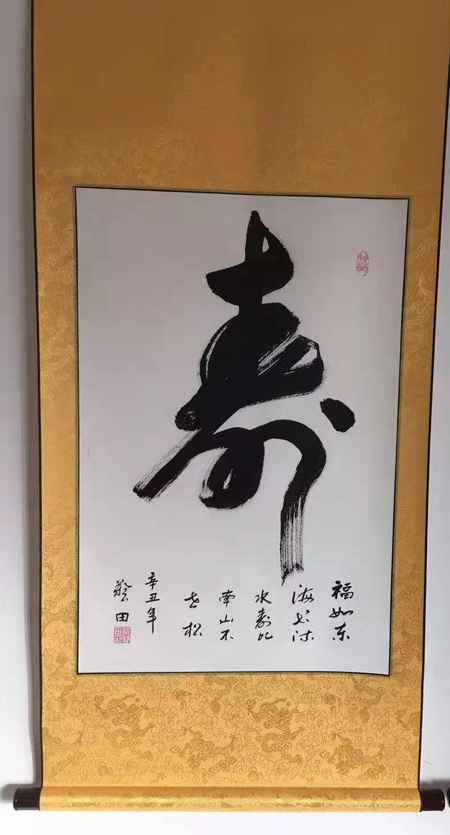 寿
福如东
海长流
水寿比
南山不
老松
辛丑年
田